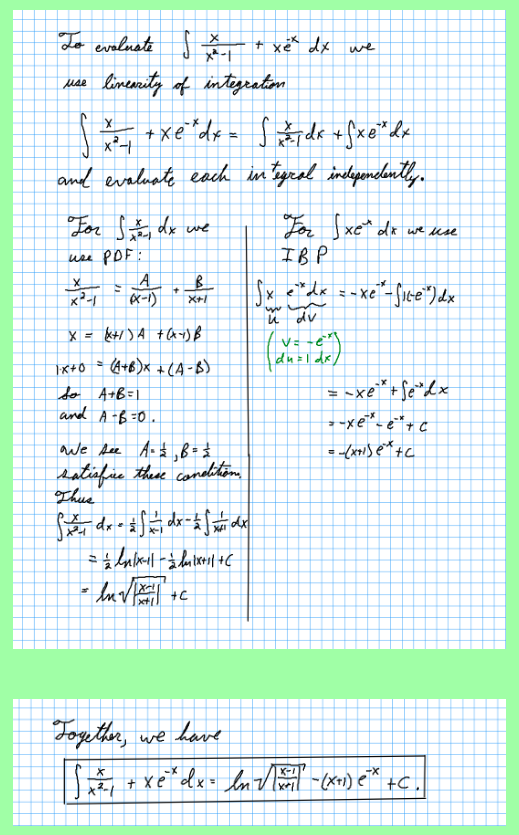 To evaluate ∫ x/(x²-1) + xe^-x dx we
use linearity of integration
∫ x/(x²-1) + xe^-x dx = ∫ x/(x²-1) dx + ∫xe^-x dx
and evaluate each integral independently.
For ∫ x/(x²-1) dx we
use PDF:
x/(x²-1) = A/(x-1) + B/(x+1)
x = (x+1)A + (x-1)B
1·x+0 = (A+B)x + (A-B)
So A+B=1
and A-B=0.
We see A=1/2, B=1/2
satisfies these condition.
Thus
∫ x/(x²-1) dx = 1/2 ∫ 1/(x-1) dx - 1/2 ∫ 1/(x+1) dx
= 1/2 ln|x-1| - 1/2 ln|x+1| + C
= ln √(|x-1|/|x+1|) + C
For ∫xe^-x dx we use
IBP
∫x e^-x dx = -xe^-x - ∫1(-e^-x)dx
u dv
(v = -e^-x
du = 1 dx)
= -xe^-x + ∫e^-x dx
= -xe^-x - e^-x + C
= -(x+1)e^-x + C
Together, we have
∫ x/(x²-1) + xe^-x dx = ln √(|x-1|/|x+1|) - (x+1)e^-x + C.